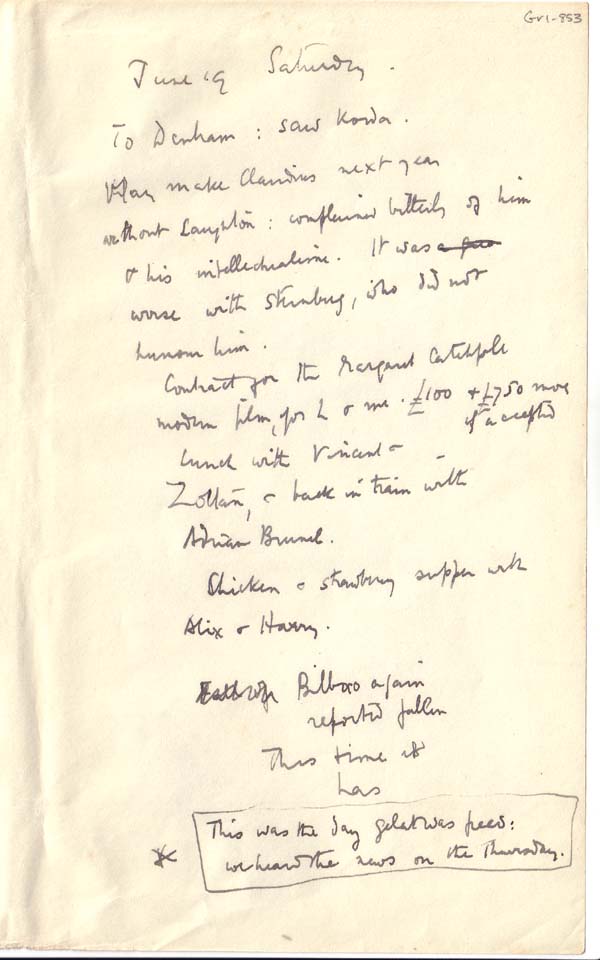 Gr1-853
June 19 Saturday.
To Denham: saw Korda.
May make Claudius next year
without Laughton: complained bitterly of him
& his intellectualism. It was a
worse with Sternberg, who did not
humour him.
Contract for the Margaret Catchpole
modern film, for L & me. £100 + £750 more
if accepted
Lunch with Vincent &
Zoltan, & back in train with
Adrian Brunel.
Chicken & strawberry supper with
Alix & Harry.
Bilbao again
reported fallen
This time it
has
This was the day Gelat was freed:
we heard the news on the Thursday.